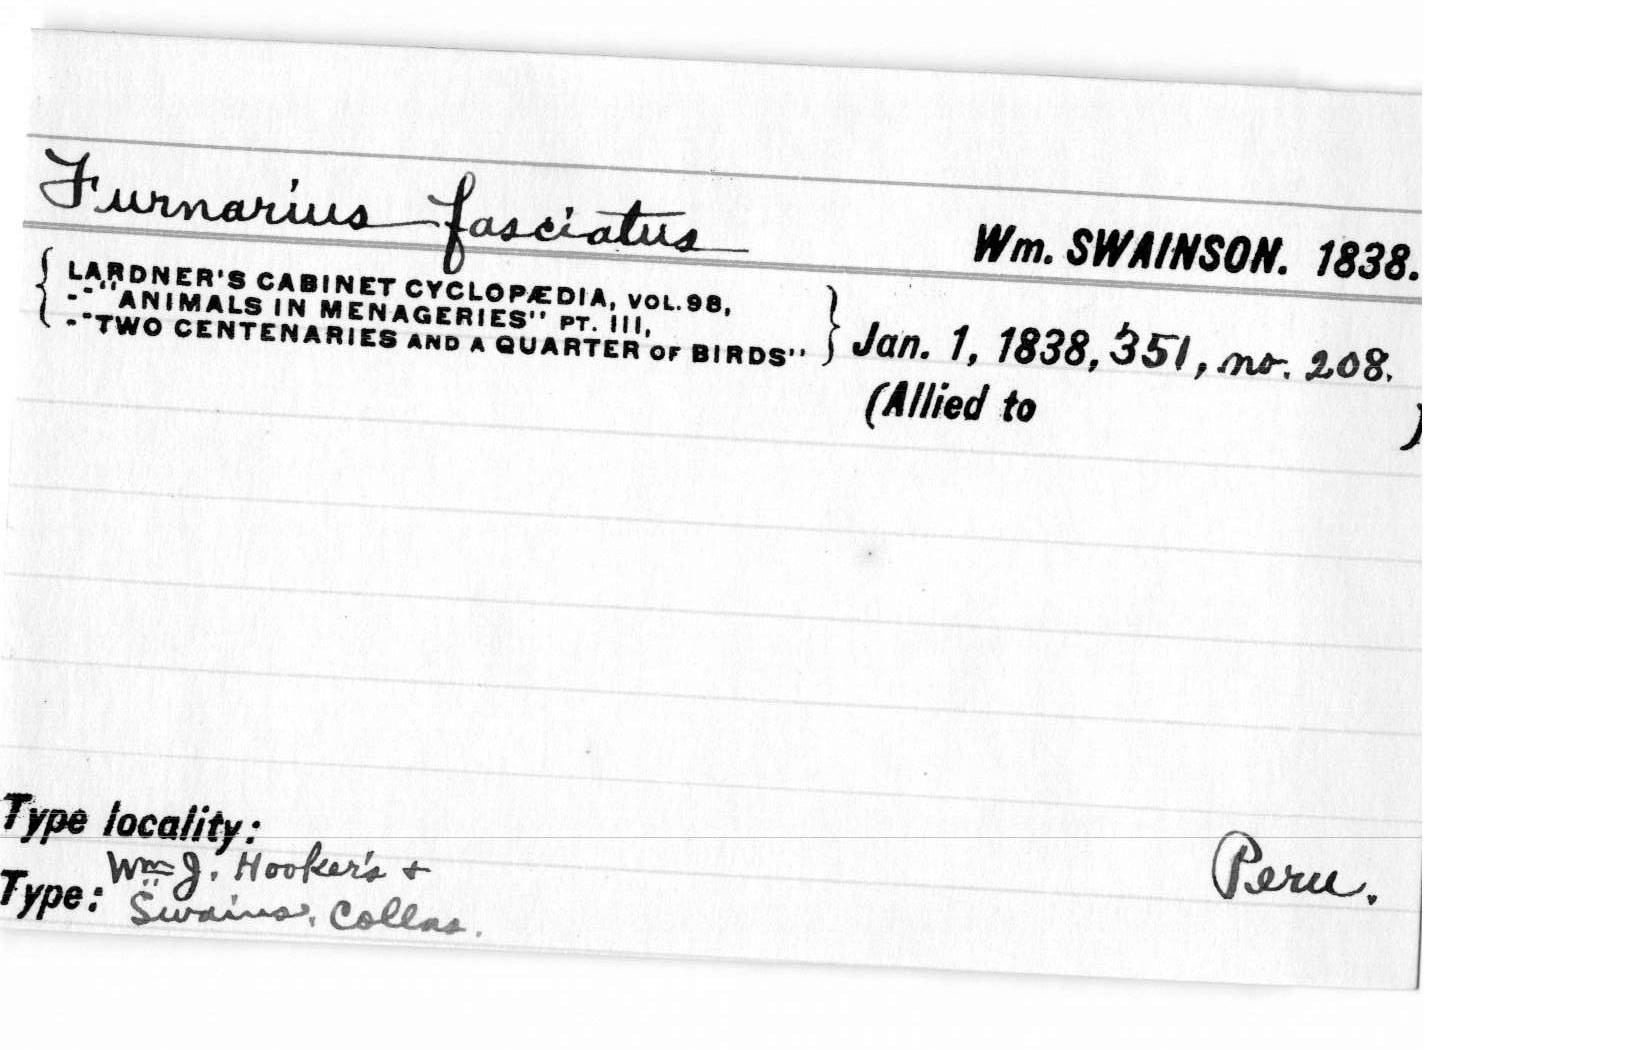 Furnarius fasciatus
Wm. SWAINSON. 1838.
LARDNER'S CABINET CYCLOPÆDIA, VOL. 98,
--"ANIMALS IN MENAGERIES" PT. III,
--"TWO CENTENARIES AND A QUARTER OF BIRDS"
Jan. 1, 1838, 351, no. 208.
(Allied to )
Type locality:
Peru.
Type: Wm J. Hooker's +
Swains. Collns.